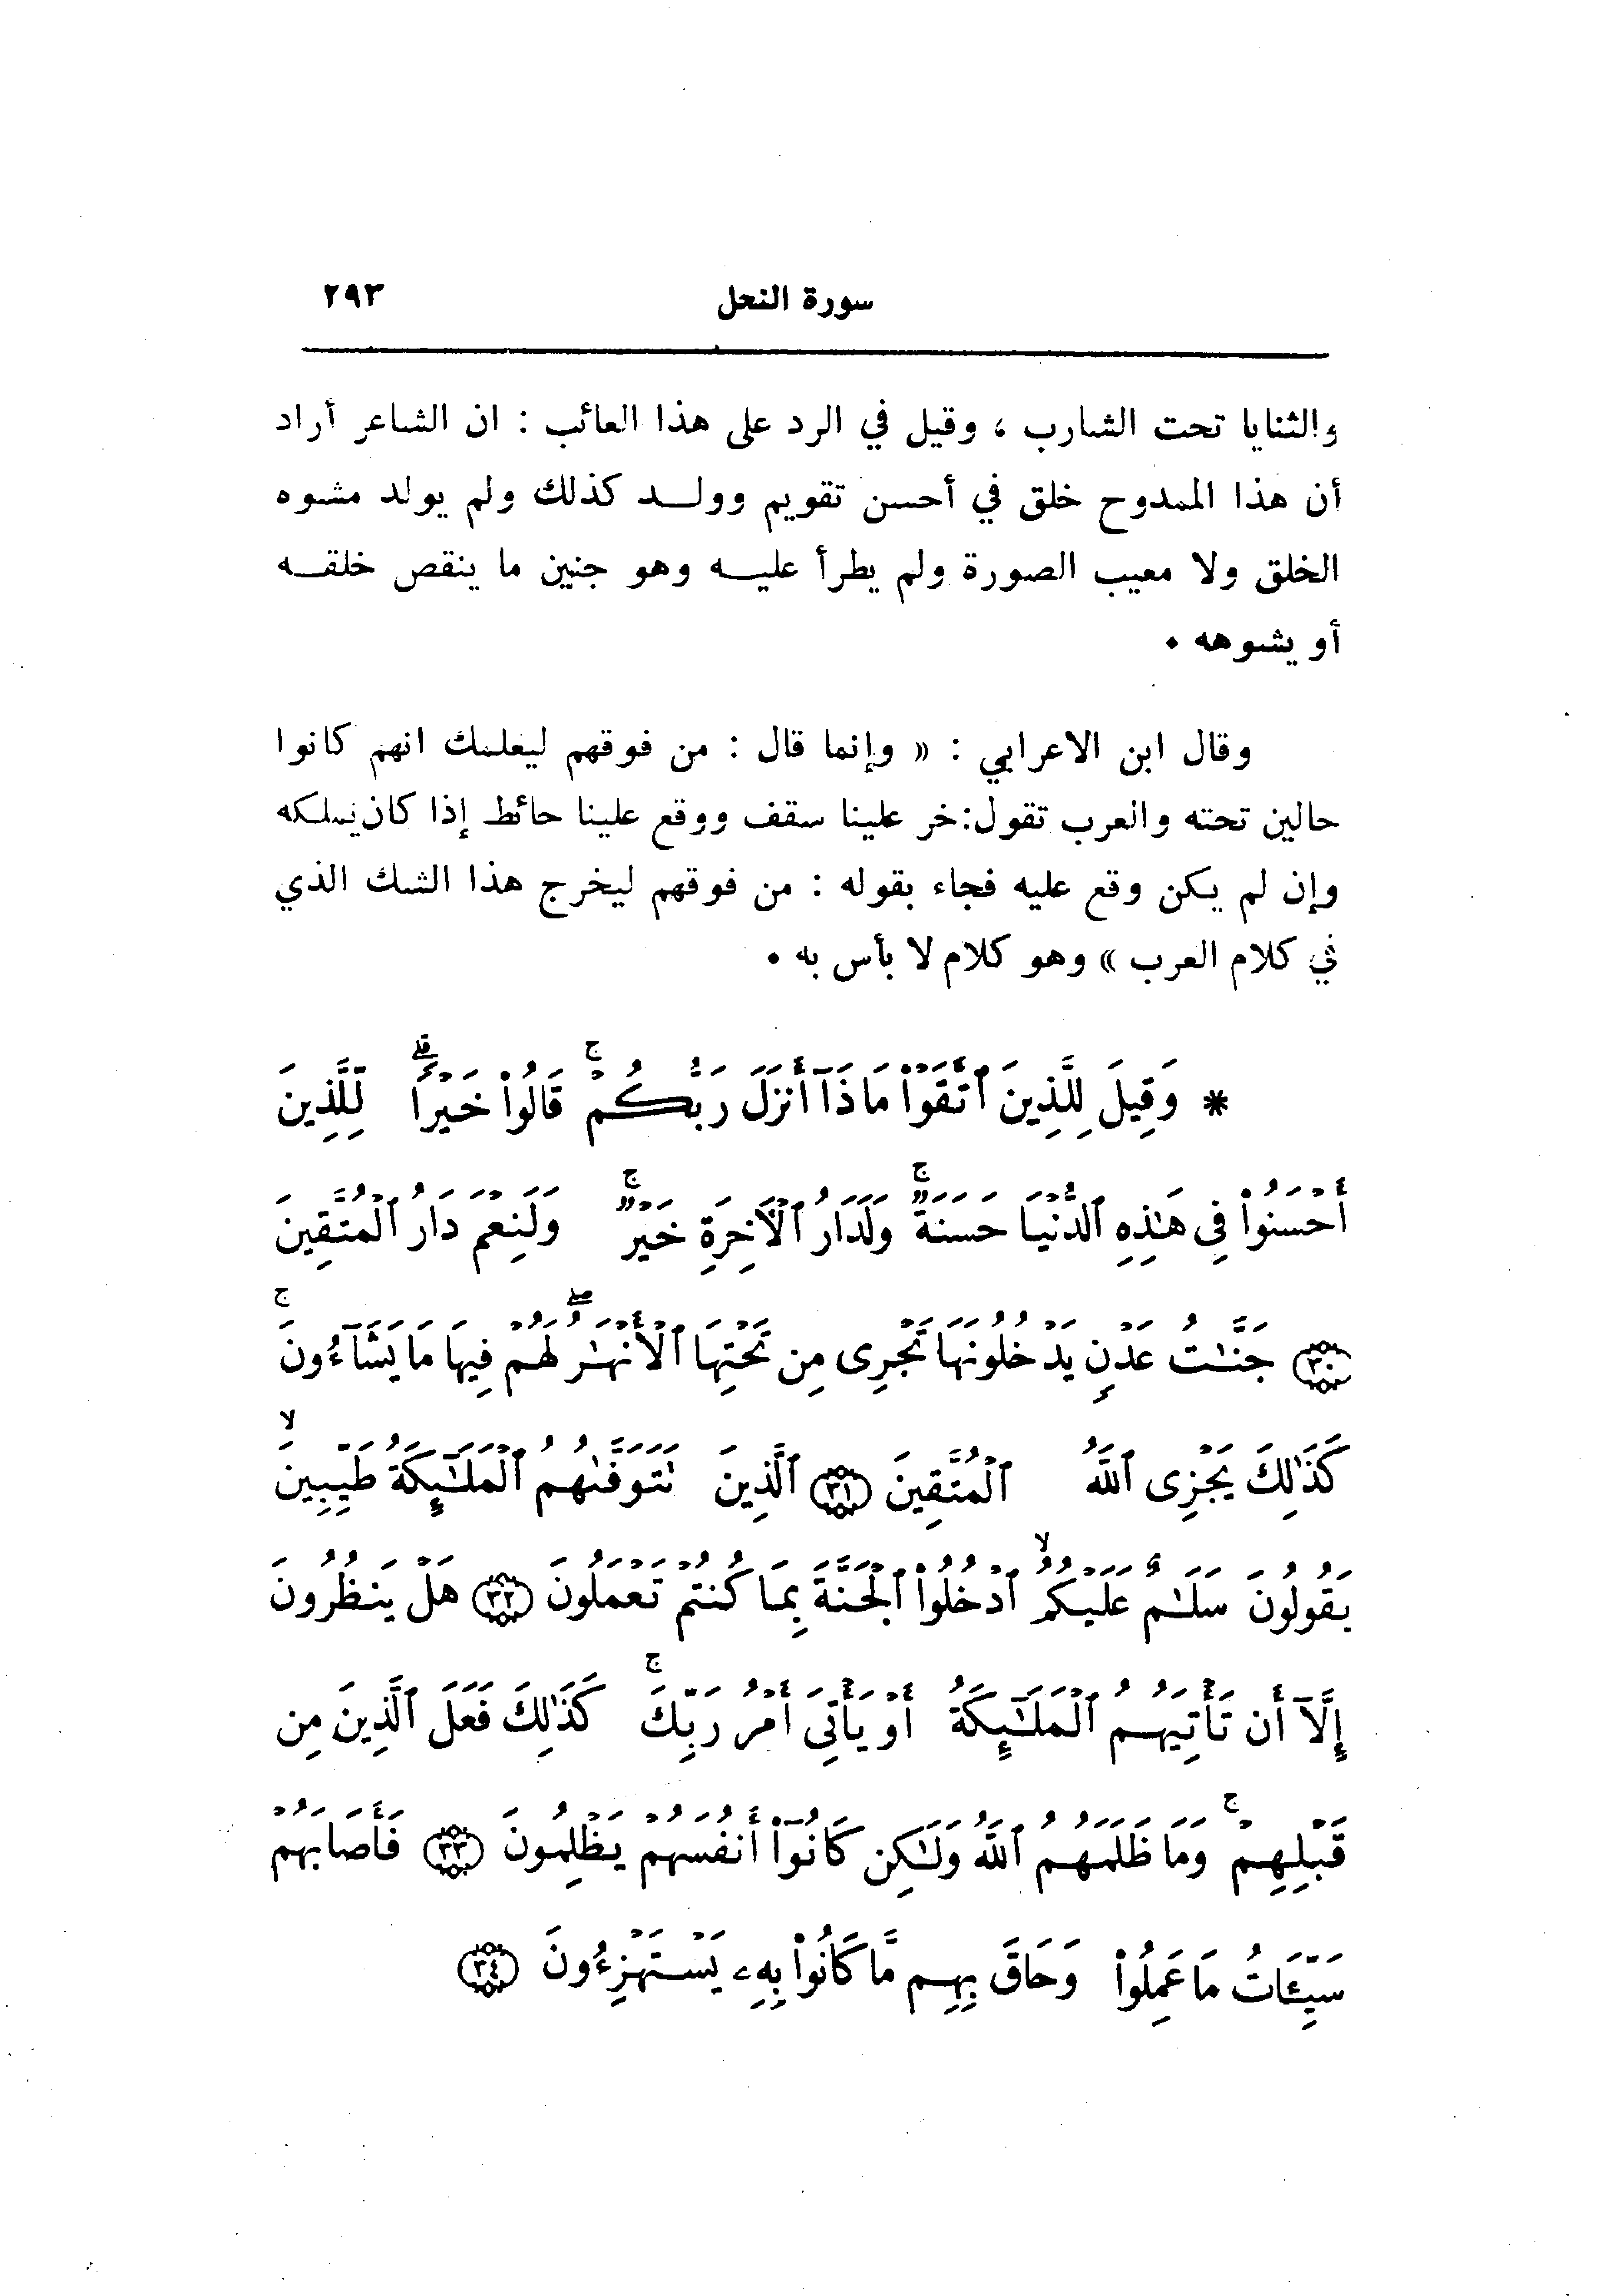 سورة النحل ٢٩٣
والثنايا تحت الشارب ، وقيل في الرد على هذا العائب : ان الشاعر أراد
أن هذا الممدوح خلق في أحسن تقويم وولـــد كذلك ولم يولد مشوه
الخلق ولا معيب الصورة ولم يطرأ عليـــه وهو جنين ما ينقص خلقـــه
أو يشوهه ٠
وقال ابن الاعرابي : « وإنما قال : من فوقهم ليعلمك انهم كانوا
حالين تحته والعرب تقول: خر علينا سقف ووقع علينا حائط إذا كان يملكه
وإن لم يكن وقع عليه فجاء بقوله : من فوقهم ليخرج هذا الشك الذي
في كلام العرب » وهو كلام لا بأس به ٠
* وَقِيلَ لِلَّذِينَ ٱتَّقَوْاْ مَاذَآ أَنزَلَ رَبُّكُمْۚ قَالُواْ خَيْرًاۗ لِّلَّذِينَ
أَحْسَنُواْ فِى هَـٰذِهِ ٱلدُّنْيَا حَسَنَةٌۚ وَلَدَارُ ٱلْأَخِرَةِ خَيْرٌۚ وَلَنِعْمَ دَارُ ٱلْمُتَّقِينَ
﴿٣٠﴾ جَنَّـٰتُ عَدْنٍ يَدْخُلُونَهَا تَجْرِى مِن تَحْتِهَا ٱلْأَنْهَـٰرُۖ لَهُمْ فِيهَا مَا يَشَآءُونَۚ
كَذَٰلِكَ يَجْزِى ٱللَّهُ ٱلْمُتَّقِينَ ﴿٣١﴾ ٱلَّذِينَ تَتَوَفَّىٰهُمُ ٱلْمَلَـٰٓئِكَةُ طَيِّبِينَۙ
يَقُولُونَ سَلَـٰمٌ عَلَيْكُمُۙ ٱدْخُلُواْ ٱلْجَنَّةَ بِمَا كُنتُمْ تَعْمَلُونَ ﴿٣٢﴾ هَلْ يَنظُرُونَ
إِلَّآ أَن تَأْتِيَهُمُ ٱلْمَلَـٰٓئِكَةُ أَوْ يَأْتِىَ أَمْرُ رَبِّكَۚ كَذَٰلِكَ فَعَلَ ٱلَّذِينَ مِن
قَبْلِهِمْۚ وَمَا ظَلَمَهُمُ ٱللَّهُ وَلَـٰكِن كَانُوٓاْ أَنفُسَهُمْ يَظْلِمُونَ ﴿٣٣﴾ فَأَصَابَهُمْ
سَيِّـَٔاتُ مَا عَمِلُواْ وَحَاقَ بِهِم مَّا كَانُواْ بِهِۦ يَسْتَهْزِءُونَ ﴿٣٤﴾